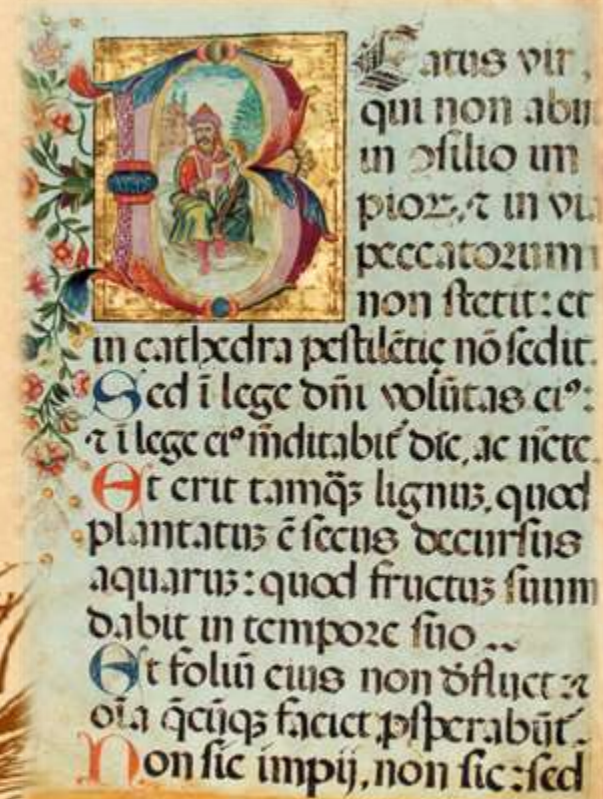 Beatus vir,
qui non abii
in ↄsilio im
pioꝝ, ⁊ in vi
peccatorum
non stetit: et
in cathedra pestilẽtie nõ sedit.
Sed ĩ lege dñi volũtas eiꝰ:
⁊ ĩ lege eiꝰ mẽditabit͛ die, ac nc̃te.
Et erit tamq̃ꝫ lignuꝫ, quod
plantatuꝫ ẽ secus decursus
aquaruꝫ: quod fructuꝫ suum
dabit in tempore suo
Et foliũ eius non dẽfluet: ⁊
oĩa q̃cũqꝫ faciet ꝓsperabũt͛.
Non sic impij, non sic: sed